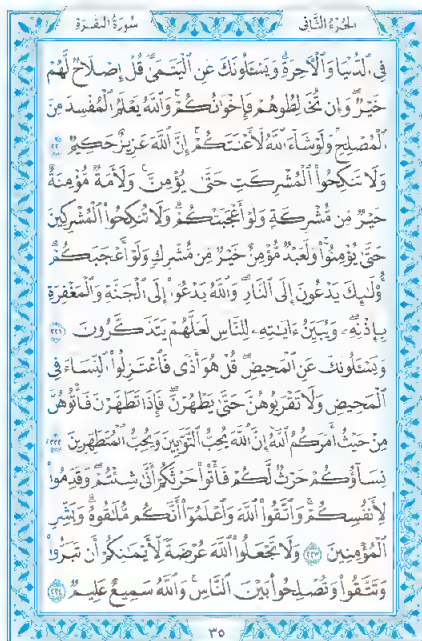 الجزء الثاني سورة البقرة
فِي ٱلدُّنْيَا وَٱلْأَخِرَةِ وَيَسْـَٔلُونَكَ عَنِ ٱلْيَتَـٰمَىٰ قُلْ إِصْلَاحٌ لَّهُمْ
خَيْرٌ وَإِن تُخَالِطُوهُمْ فَإِخْوَٰنُكُمْ وَٱللَّهُ يَعْلَمُ ٱلْمُفْسِدَ مِنَ
ٱلْمُصْلِحِ وَلَوْ شَآءَ ٱللَّهُ لَأَعْنَتَكُمْ إِنَّ ٱللَّهَ عَزِيزٌ حَكِيمٌ ٢٢٠
وَلَا تَنكِحُوا۟ ٱلْمُشْرِكَـٰتِ حَتَّىٰ يُؤْمِنَّ وَلَأَمَةٌ مُّؤْمِنَةٌ
خَيْرٌ مِّن مُّشْرِكَةٍ وَلَوْ أَعْجَبَتْكُمْ وَلَا تُنكِحُوا۟ ٱلْمُشْرِكِينَ
حَتَّىٰ يُؤْمِنُوا۟ وَلَعَبْدٌ مُّؤْمِنٌ خَيْرٌ مِّن مُّشْرِكٍ وَلَوْ أَعْجَبَكُمْ
أُو۟لَـٰٓئِكَ يَدْعُونَ إِلَى ٱلنَّارِ وَٱللَّهُ يَدْعُوٓا۟ إِلَى ٱلْجَنَّةِ وَٱلْمَغْفِرَةِ
بِإِذْنِهِۦ وَيُبَيِّنُ ءَايَـٰتِهِۦ لِلنَّاسِ لَعَلَّهُمْ يَتَذَكَّرُونَ ٢٢١
وَيَسْـَٔلُونَكَ عَنِ ٱلْمَحِيضِ قُلْ هُوَ أَذًى فَٱعْتَزِلُوا۟ ٱلنِّسَآءَ فِي
ٱلْمَحِيضِ وَلَا تَقْرَبُوهُنَّ حَتَّىٰ يَطْهُرْنَ فَإِذَا تَطَهَّرْنَ فَأْتُوهُنَّ
مِنْ حَيْثُ أَمَرَكُمُ ٱللَّهُ إِنَّ ٱللَّهَ يُحِبُّ ٱلتَّوَّٰبِينَ وَيُحِبُّ ٱلْمُتَطَهِّرِينَ ٢٢٢
نِسَآؤُكُمْ حَرْثٌ لَّكُمْ فَأْتُوا۟ حَرْثَكُمْ أَنَّىٰ شِئْتُمْ وَقَدِّمُوا۟
لِأَنفُسِكُمْ وَٱتَّقُوا۟ ٱللَّهَ وَٱعْلَمُوٓا۟ أَنَّكُم مُّلَـٰقُوهُ وَبَشِّرِ
ٱلْمُؤْمِنِينَ ٢٢٣ وَلَا تَجْعَلُوا۟ ٱللَّهَ عُرْضَةً لِّأَيْمَـٰنِكُمْ أَن تَبَرُّوا۟
وَتَتَّقُوا۟ وَتُصْلِحُوا۟ بَيْنَ ٱلنَّاسِ وَٱللَّهُ سَمِيعٌ عَلِيمٌ ٢٢٤
٣٥